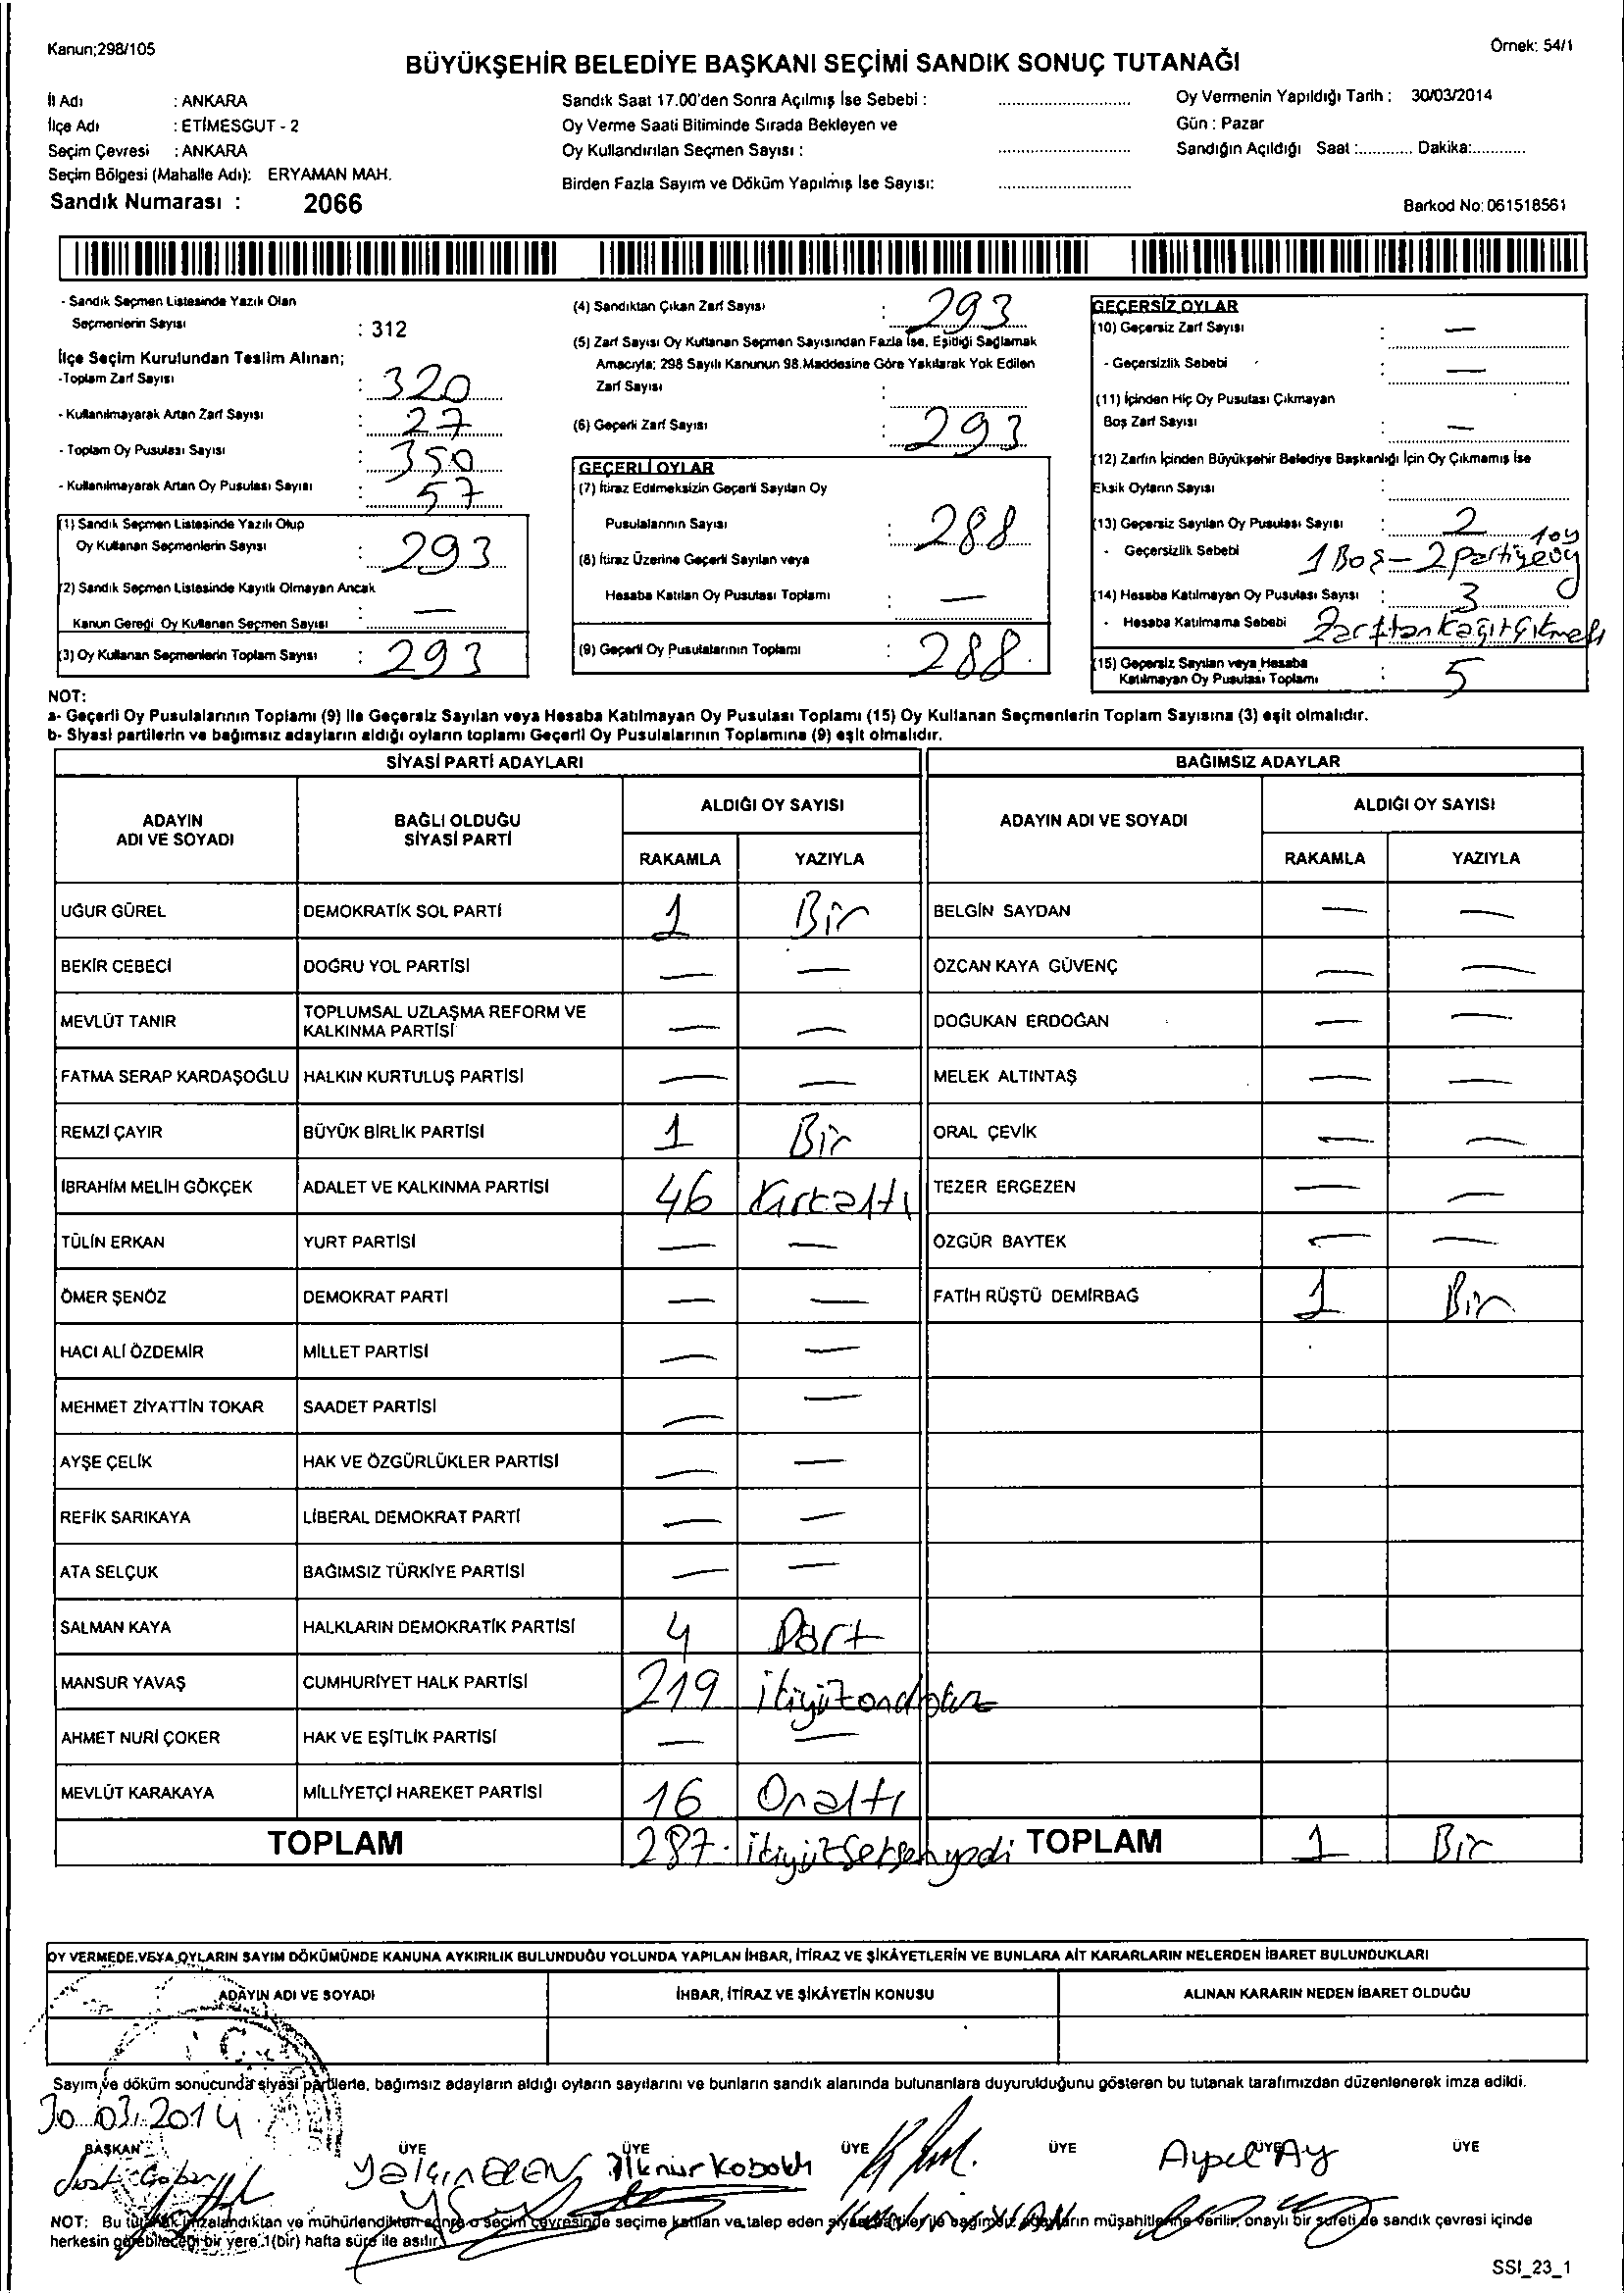 Kanun;298/105
Örnek: 54/1
BÜYÜKŞEHİR BELEDİYE BAŞKANI SEÇİMİ SANDIK SONUÇ TUTANAĞI
İl Adı : ANKARA
İlçe Adı : ETİMESGUT - 2
Seçim Çevresi : ANKARA
Seçim Bölgesi (Mahalle Adı): ERYAMAN MAH.
Sandık Numarası : 2066
Sandık Saat 17.00'den Sonra Açılmış İse Sebebi :
Oy Verme Saati Bitiminde Sırada Bekleyen ve
Oy Kullandırılan Seçmen Sayısı :
Birden Fazla Sayım ve Döküm Yapılmış İse Sayısı:
Oy Vermenin Yapıldığı Tarih : 30/03/2014
Gün : Pazar
Sandığın Açıldığı Saat :............ Dakika:............
Barkod No: 061518561
- Sandık Seçmen Listesinde Yazılı Olan
Seçmenlerin Sayısı : 312
İlçe Seçim Kurulundan Teslim Alınan;
-Toplam Zarf Sayısı : 320
- Kullanılmayarak Artan Zarf Sayısı : 27
- Toplam Oy Pusulası Sayısı : 350
- Kullanılmayarak Artan Oy Pusulası Sayısı : 57
(1) Sandık Seçmen Listesinde Yazılı Olup
Oy Kullanan Seçmenlerin Sayısı : 293
(2) Sandık Seçmen Listesinde Kayıtlı Olmayan Ancak
Kanun Gereği Oy Kullanan Seçmen Sayısı : —
(3) Oy Kullanan Seçmenlerin Toplam Sayısı : 293
(4) Sandıktan Çıkan Zarf Sayısı : 293
(5) Zarf Sayısı Oy Kullanan Seçmen Sayısından Fazla İse, Eşitliği Sağlamak
Amacıyla; 298 Sayılı Kanunun 98.Maddesine Göre Yakılarak Yok Edilen
Zarf Sayısı :
(6) Geçerli Zarf Sayısı : 293
GEÇERLİ OYLAR
(7) İtiraz Edilmeksizin Geçerli Sayılan Oy
Pusulalarının Sayısı : 288
(8) İtiraz Üzerine Geçerli Sayılan veya
Hesaba Katılan Oy Pusulası Toplamı : —
(9) Geçerli Oy Pusulalarının Toplamı : 288
GEÇERSİZ OYLAR
(10) Geçersiz Zarf Sayısı : —
- Geçersizlik Sebebi : —
(11) İçinden Hiç Oy Pusulası Çıkmayan
Boş Zarf Sayısı : —
(12) Zarfın İçinden Büyükşehir Belediye Başkanlığı İçin Oy Çıkmamış İse
Eksik Oyların Sayısı :
(13) Geçersiz Sayılan Oy Pusulası Sayısı : 2
- Geçersizlik Sebebi 1 Boş - 2 partiye oy 1 oy
(14) Hesaba Katılmayan Oy Pusulası Sayısı : 3
- Hesaba Katılmama Sebebi Zarftan Kağıt Çıkmadı
(15) Geçersiz Sayılan veya Hesaba
Katılmayan Oy Pusulası Toplamı : 5
NOT:
a- Geçerli Oy Pusulalarının Toplamı (9) ile Geçersiz Sayılan veya Hesaba Katılmayan Oy Pusulası Toplamı (15) Oy Kullanan Seçmenlerin Toplam Sayısına (3) eşit olmalıdır.
b- Siyasi partilerin ve bağımsız adayların aldığı oyların toplamı Geçerli Oy Pusulalarının Toplamına (9) eşit olmalıdır.
SİYASİ PARTİ ADAYLARI
ADAYIN ADI VE SOYADI BAĞLI OLDUĞU SİYASİ PARTİ ALDIĞI OY SAYISI
RAKAMLA YAZIYLA
UĞUR GÜREL DEMOKRATİK SOL PARTİ 1 Bir
BEKİR CEBECİ DOĞRU YOL PARTİSİ — —
MEVLÜT TANIR TOPLUMSAL UZLAŞMA REFORM VE KALKINMA PARTİSİ — —
FATMA SERAP KARDAŞOĞLU HALKIN KURTULUŞ PARTİSİ — —
REMZİ ÇAYIR BÜYÜK BİRLİK PARTİSİ 1 Bir
İBRAHİM MELİH GÖKÇEK ADALET VE KALKINMA PARTİSİ 46 Kırkaltı
TÜLİN ERKAN YURT PARTİSİ — —
ÖMER ŞENÖZ DEMOKRAT PARTİ — —
HACI ALİ ÖZDEMİR MİLLET PARTİSİ — —
MEHMET ZİYATTİN TOKAR SAADET PARTİSİ — —
AYŞE ÇELİK HAK VE ÖZGÜRLÜKLER PARTİSİ — —
REFİK SARIKAYA LİBERAL DEMOKRAT PARTİ — —
ATA SELÇUK BAĞIMSIZ TÜRKİYE PARTİSİ — —
SALMAN KAYA HALKLARIN DEMOKRATİK PARTİSİ 4 Dört
MANSUR YAVAŞ CUMHURİYET HALK PARTİSİ 219 ikiyüzondokuz
AHMET NURİ ÇOKER HAK VE EŞİTLİK PARTİSİ — —
MEVLÜT KARAKAYA MİLLİYETÇİ HAREKET PARTİSİ 16 Onaltı
TOPLAM 287 ikiyüzseksenyedi
BAĞIMSIZ ADAYLAR
ADAYIN ADI VE SOYADI ALDIĞI OY SAYISI
RAKAMLA YAZIYLA
BELGİN SAYDAN — —
ÖZCAN KAYA GÜVENÇ — —
DOĞUKAN ERDOĞAN — —
MELEK ALTINTAŞ — —
ORAL ÇEVİK — —
TEZER ERGEZEN — —
ÖZGÜR BAYTEK — —
FATİH RÜŞTÜ DEMİRBAĞ 1 Bir
TOPLAM 1 Bir
OY VERMEDE VEYA OYLARIN SAYIM DÖKÜMÜNDE KANUNA AYKIRILIK BULUNDUĞU YOLUNDA YAPILAN İHBAR, İTİRAZ VE ŞİKÂYETLERİN VE BUNLARA AİT KARARLARIN NELERDEN İBARET BULUNDUKLARI
ADAYIN ADI VE SOYADI İHBAR, İTİRAZ VE ŞİKÂYETİN KONUSU ALINAN KARARIN NEDEN İBARET OLDUĞU
Sayım ve döküm sonucunda siyasi partilerle, bağımsız adayların aldığı oyların sayılarını ve bunların sandık alanında bulunanlara duyurulduğunu gösteren bu tutanak tarafımızdan düzenlenerek imza edildi.
30.03.2014
BAŞKAN ÜYE ÜYE ÜYE ÜYE ÜYE ÜYE
Yalçın İlknur Aysel Ay
NOT: Bu tutanak imzalandıktan ve mühürlendikten sonra o seçim çevresinde seçime katılan ve talep eden siyasi partiler ile bağımsız adayların müşahitlerine verilir, onaylı bir sureti de sandık çevresi içinde
herkesin görebileceği bir yere 1(bir) hafta süre ile asılır.
SSI_23_1